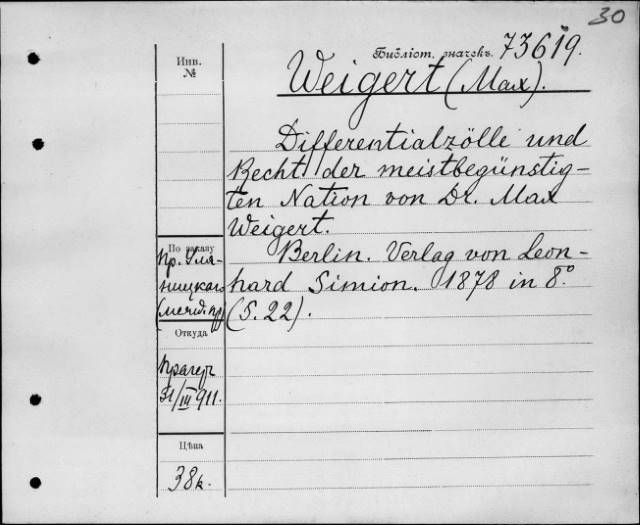 30
Библіот. значекъ. 73619.
Инв.
№
Weigert (Max).
Differentialzölle und
Recht der meistbegünstig-
ten Nation von Dr. Max
Weigert.
Berlin. Verlag von Leon-
hard Simion. 1878 in 8°.
(S. 22).
По заказу
пр. Уля-
ницкаго
(межд. пр)
Откуда
Прагеръ
31/III 911.
Цѣна
38к.